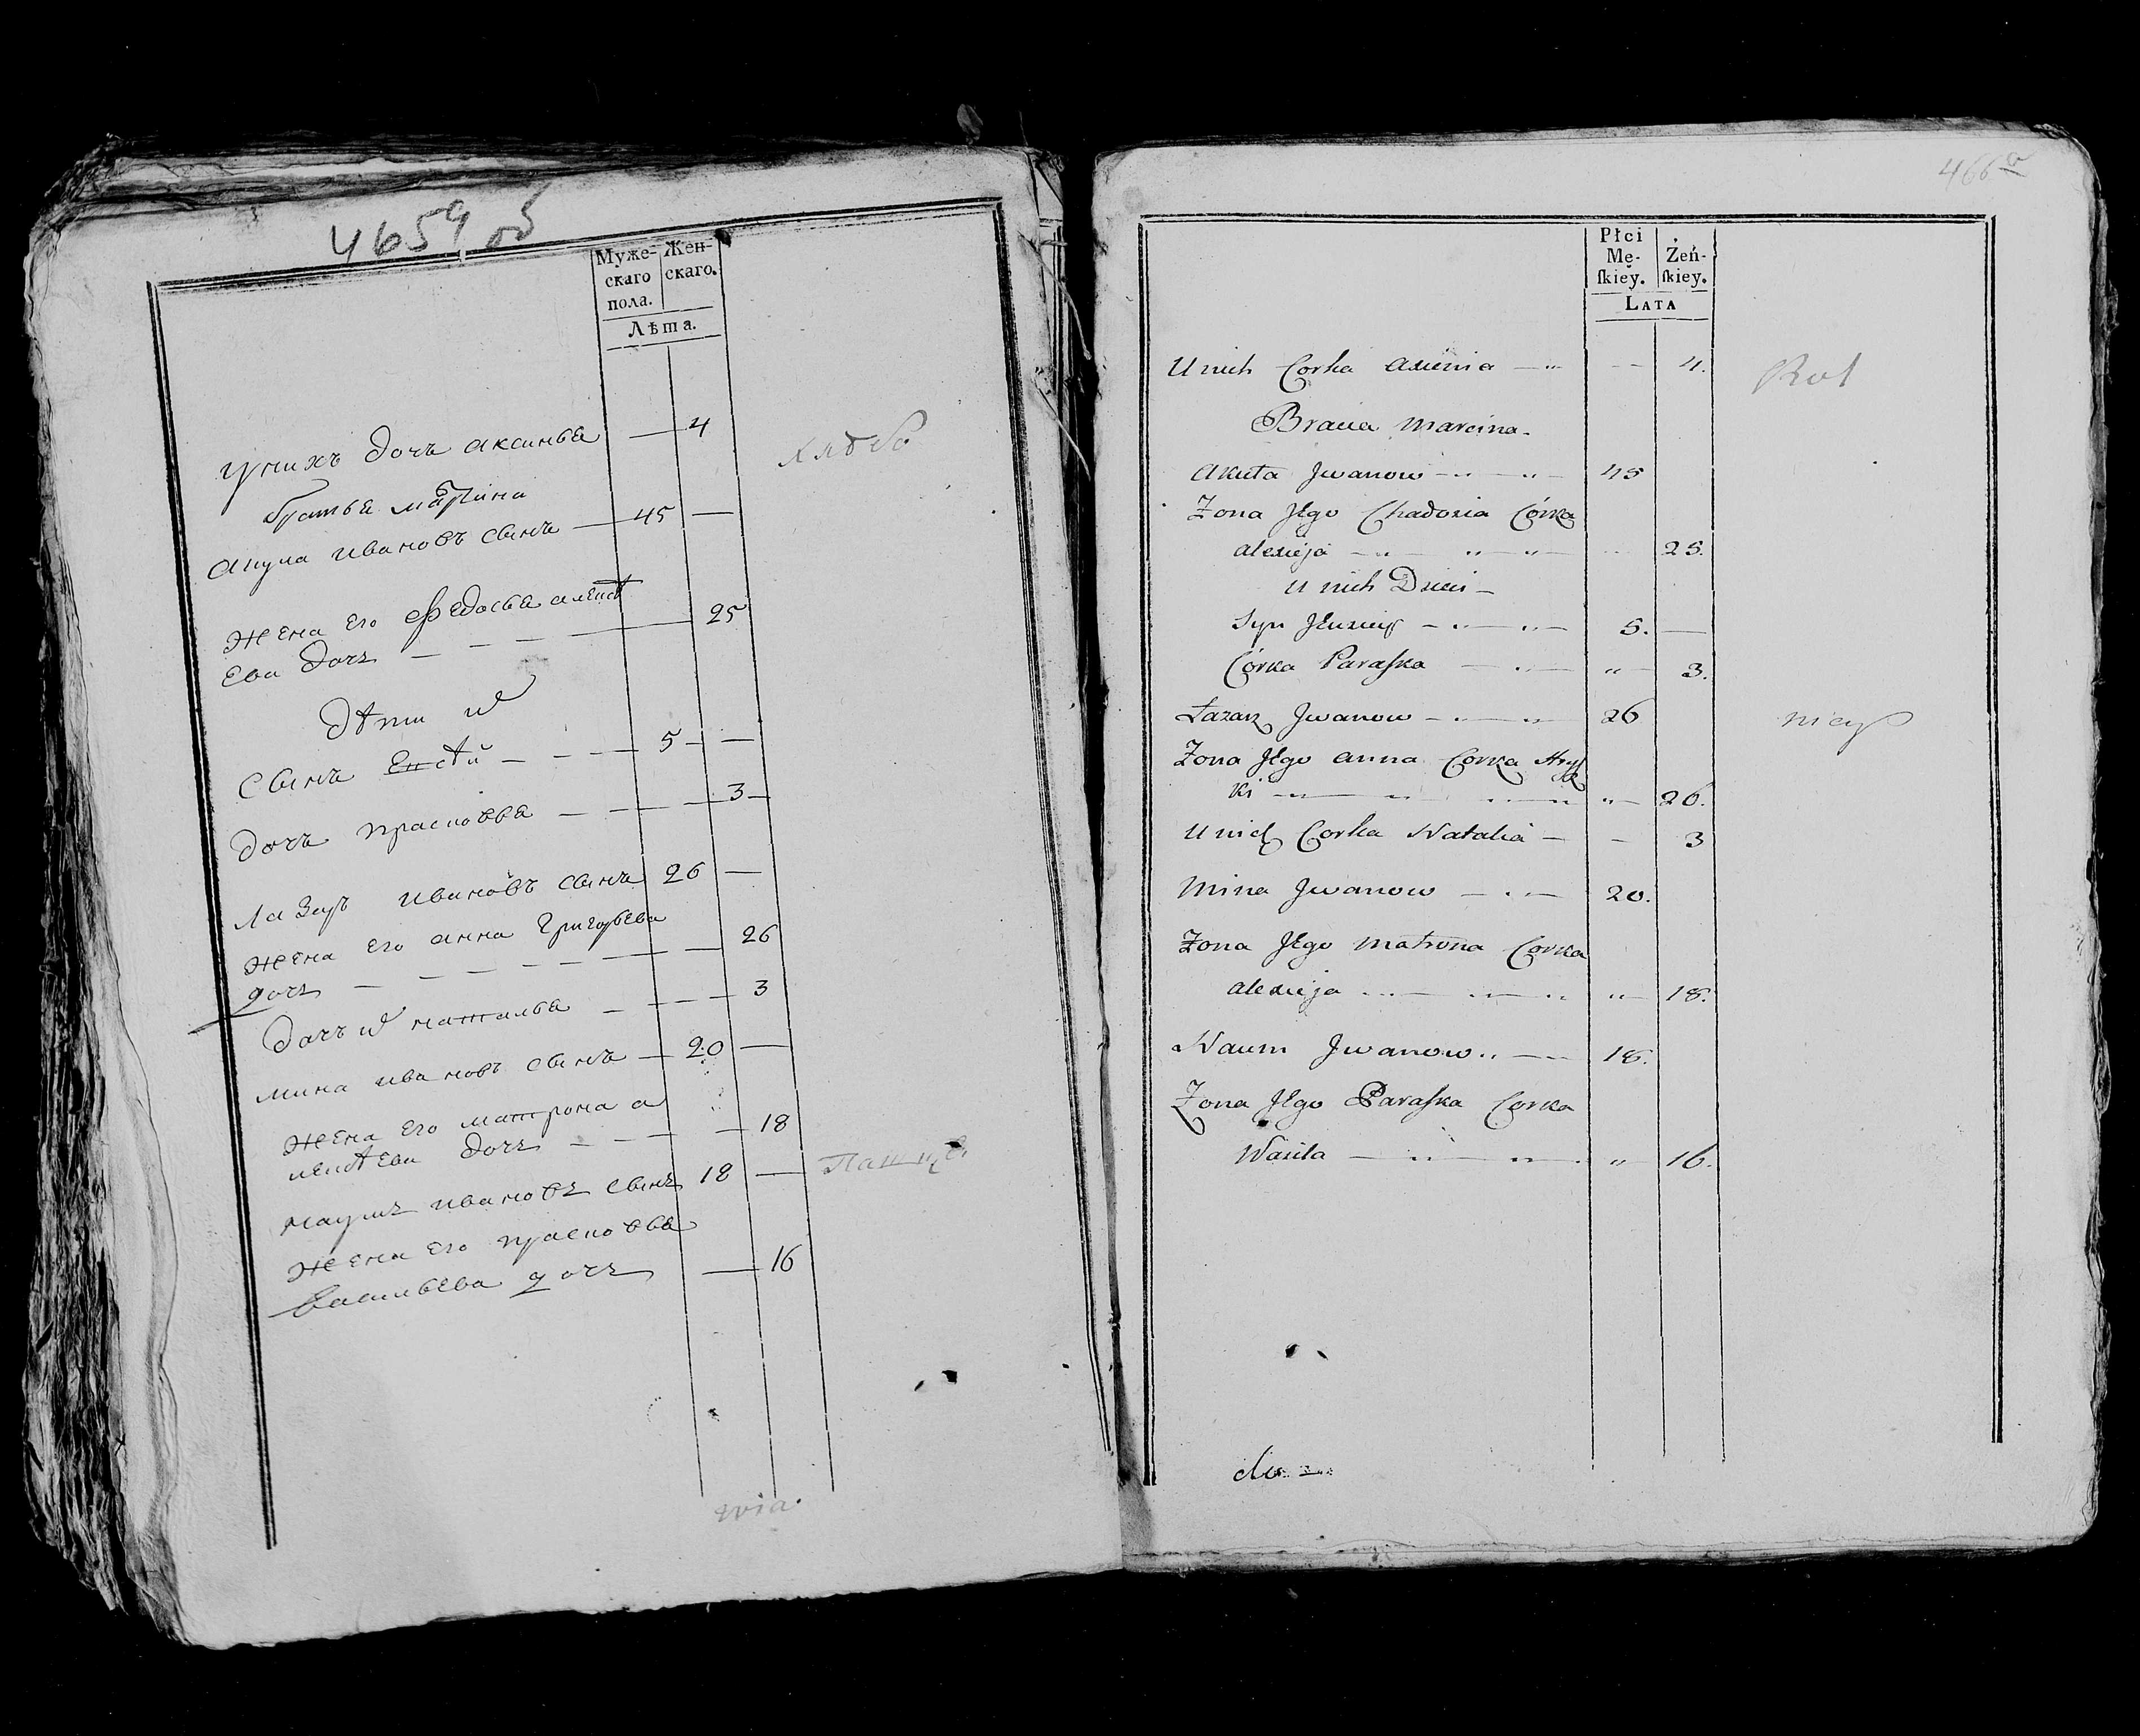 465 об
Муже- Жен-
скаго скаго.
пола.
Лѣта.
у нихъ дочь аксинья — 4
братья мартина
акула ивановъ сынъ — 45 —
жена его федосья алексѣ
ева дочь — — — 25
дѣти их
сынъ Евсѣй — — — 5 —
дочь прасковья — — — 3 —
лазарь ивановъ сынъ 26 —
жена его анна григорьева
дочь — — — — — — 26
дочь их наталья — — — — 3
мина ивановъ сынъ — 20 —
жена его матрона а
лексѣева дочь — — — — 18
наумъ ивановъ сынъ 18 —
жена его прасковья
васильева дочь — 16
466
Płci
Mę- Żeń-
ſkiey. ſkiey.
LATA
U nich Corka axienia — " — — 4.
Bracia Marcina.
Akuła Jwanow — " — " — 45
Zona Jego Chadosia Córka
alexieja — " — " — " — 25.
U nich Dzieci —
Syn Jewsiey — " — " — 5. —
Córka Paraſka — " — " — 3.
Łazarz Jwanow — " — " 26
Zona Jego anna Corka Hryſz
ki — " — " — " — " — 26.
U nich Corka Natalia — — 3
Mina Jwanow — " — 20.
Zona Jego matrona Corka
alexieja — " — " — " " — 18.
Naum Jwanow " — " 18.
Zona Jego Paraſka Corka
Wasila — " — " — " — 16.